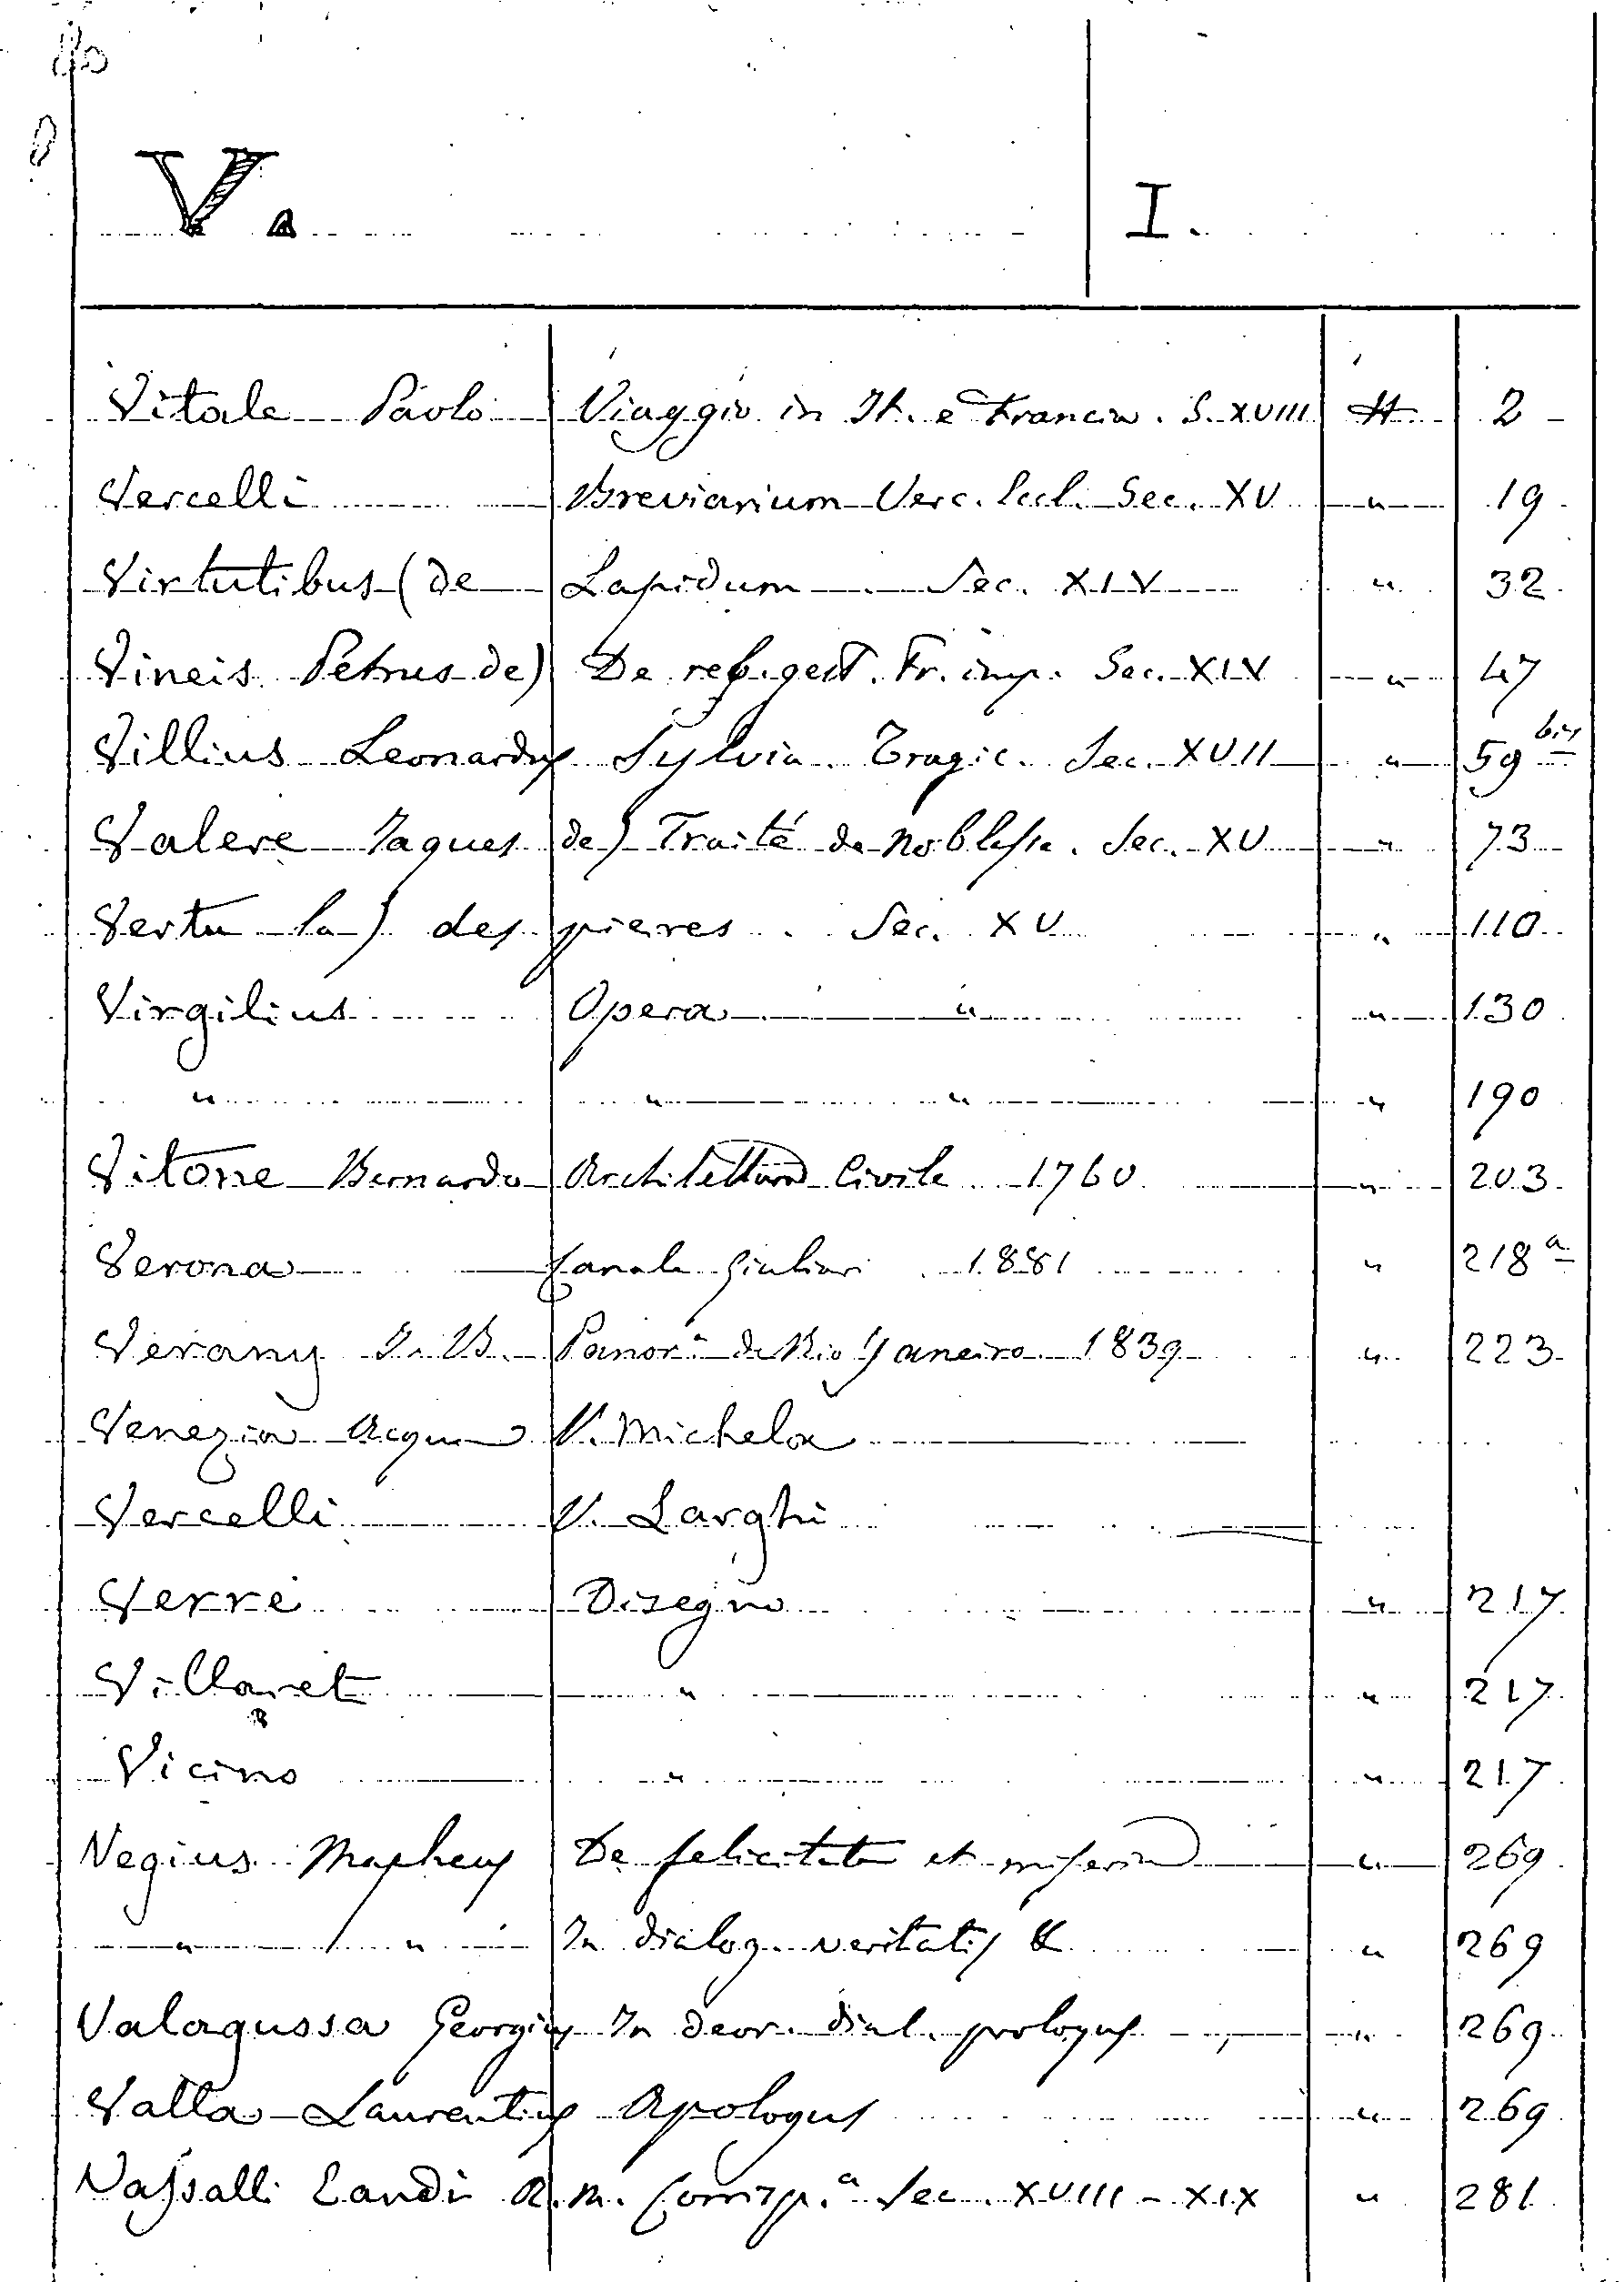 V. I.
Vitale Paolo Viaggio in It. e Francia. S. XVIII H 2
Vercelli Breviarium Verc. Eccl. Sec. XV " 19
Virtutibus (de Lapidum Sec. XIV " 32
Vineis Petrus de) De reb. gest. Fr. imp. Sec. XIV " 47
Villius Leonardus Sylvia. Tragic. Sec. XVII " 59 bis
Valere Jaques de) Traité de noblesse. Sec. XV " 73
Vertu la) des pierres. Sec. XV " 110
Virgilius Opera " " 130
" " " " 190
Vitone Bernardo Architettura Civile 1760 " 203
Verona Canale Giuliari 1881 " 218 a
Verany J. B. Panor.a de Rio Janeiro 1839 " 223
Venezia Acqua V. Michela
Vercelli V. Larghi
Verre Disegno " 217
Villaret " " 217
Vicino " " 217
Vegius Mapheus De felicitate et miseria " 269
" " In dialog. veritatis & " 269
Valagussa Georgius In deor. dial. prologus " 269
Valla Laurentius Apologus " 269
Vassalli Eandi A. M. Corrisp.a Sec. XVIII - XIX " 281